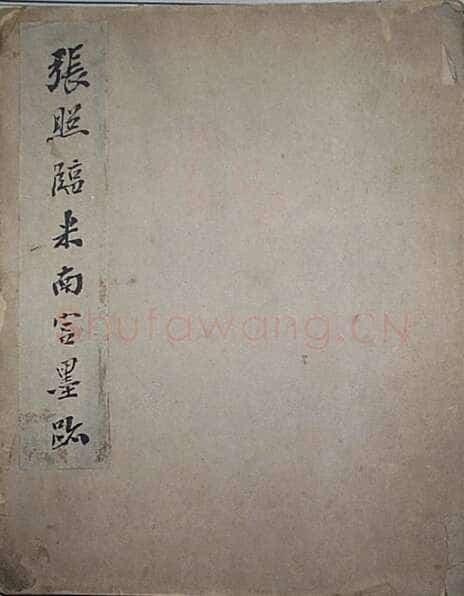 張照臨米南宮墨跡
shufawang.CN